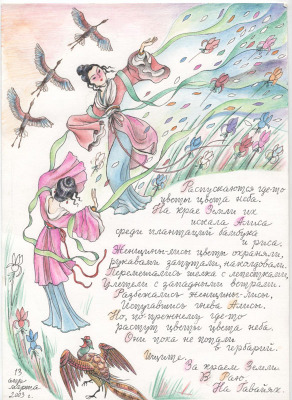 Распускаются где-то
цветы цвета неба.
На крае Земли их
искала Алиса
среди плантаций бамбука
и риса.
Женщины-лисы цветы охраняли,
рукавами запутали, наколдовали.
Перемешались шелка с лепестками,
Улетели с западными ветрами.
Разбежались женщины-лисы,
Испугавшись гнева Алисы.
Но, по-прежнему, где-то
растут цветы цвета неба.
Они пока не попали
в гербарий.
Ищите.
За краем Земли.
В Раю.
На Гавайях.
13
марта
2003 г.